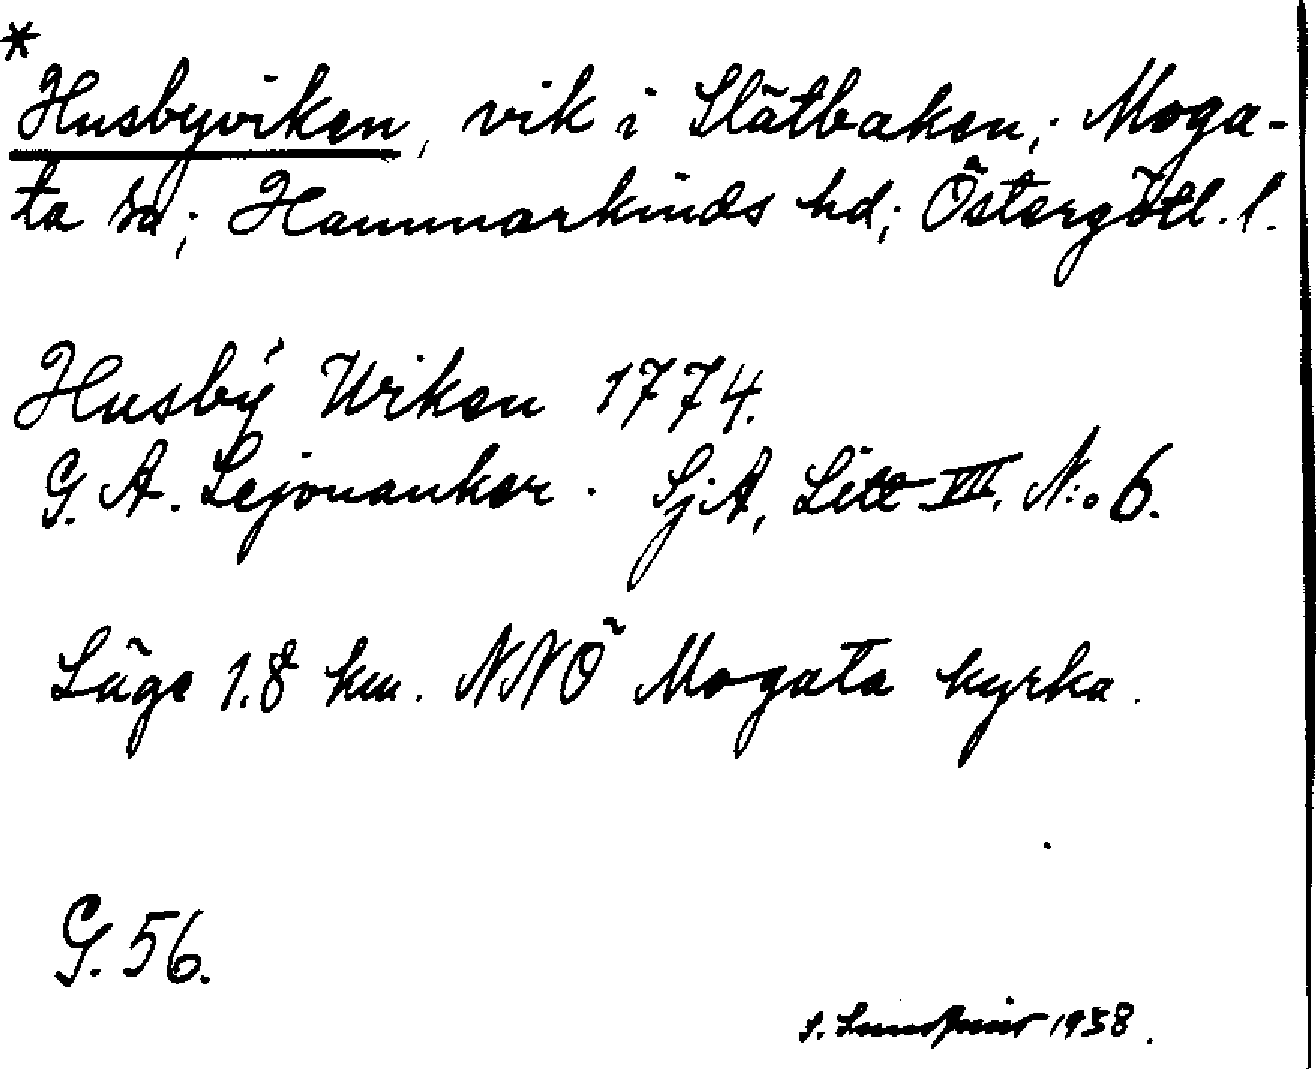 *
Husbyviken, vik i Slätbaken; Moga-
ta sn; Hammarkinds hd; Östergötl. l.
Husbÿ Wiken 1774.
G. A. Lejonanker. SjA, Litt VII. N:o 6.
Läge 1.8 km. NNÖ Mogata kyrka.
G. 56.
S. Lundqvist 1938.